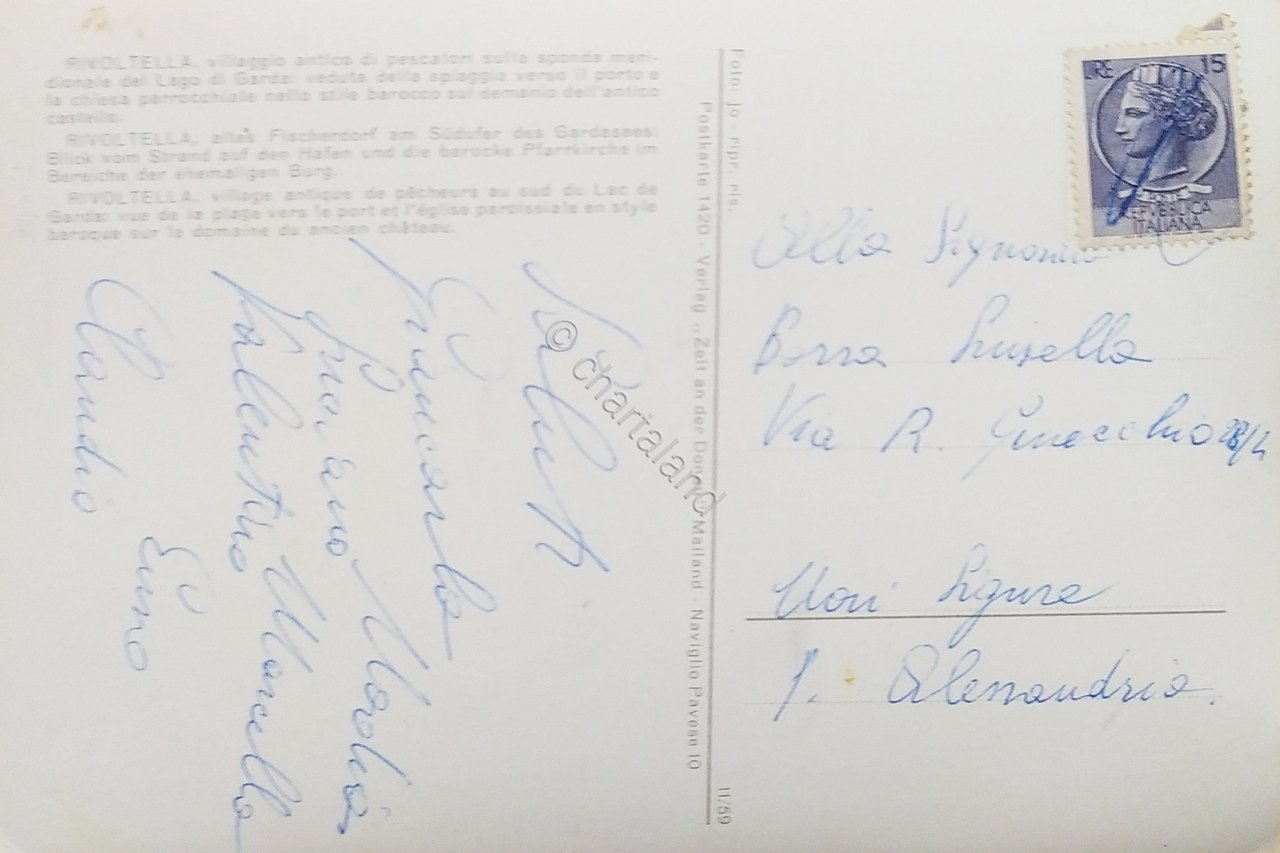 RIVOLTELLA, villaggio antico di pescatori sulla sponda meri-
dionale del Lago di Garda: veduta della spiaggia verso il porto e
la chiesa parrocchiale nello stile barocco sul demanio dell'antico
castello.
RIVOLTELLA, altes Fischerdorf am Südufer des Gardasees:
Blick vom Strand auf den Hafen und die barocke Pfarrkirche im
Bereiche der ehemaligen Burg.
RIVOLTELLA, village antique de pêcheurs au sud du Lac de
Garda: vue de la plage vers le port et l'église paroissiale en style
baroque sur le domaine du ancien château.
Saluti
Giancarla
Graziano Marolia
Valentino Marcella
Claudio Gino
Foto: jo - ripr. ris.
Postkarte 1420 - Verlag „Zeit an der Mailand - Naviglio Pavese 10
11/59
LIRE 15
REPUBBLICA
ITALIANA
Alla Signorina
Borra Luisella
Via R. 28/4
Novi Ligure
Alessandria.
© chartaland